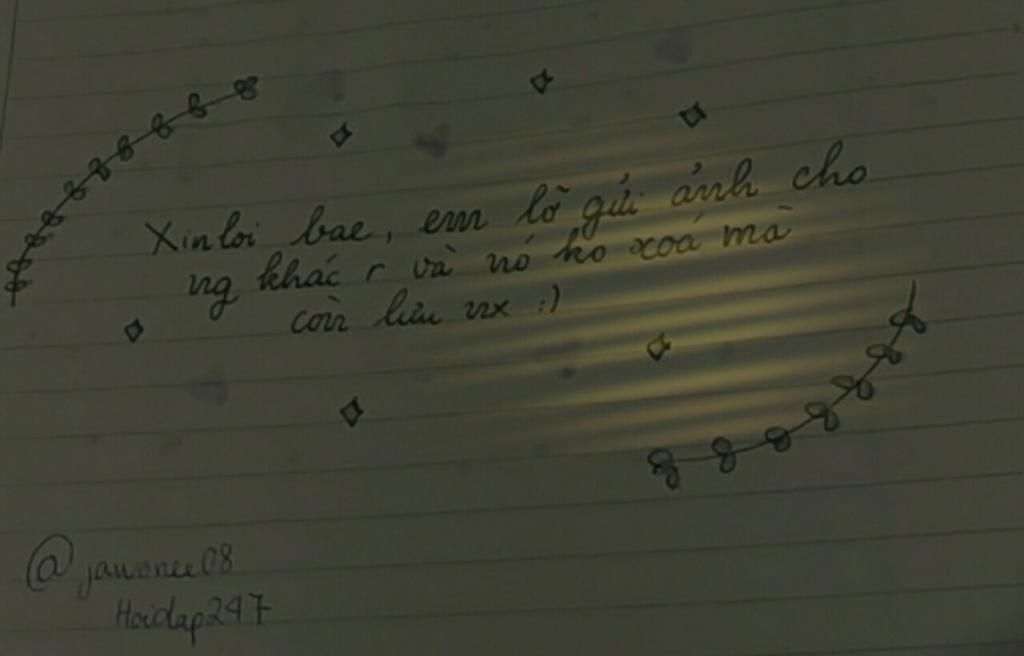 Xin loi bae, em lỡ gửi ảnh cho
ng khác r và nó ko xoá mà
còn lưu nx :)
@jawonee08
Hoidap247